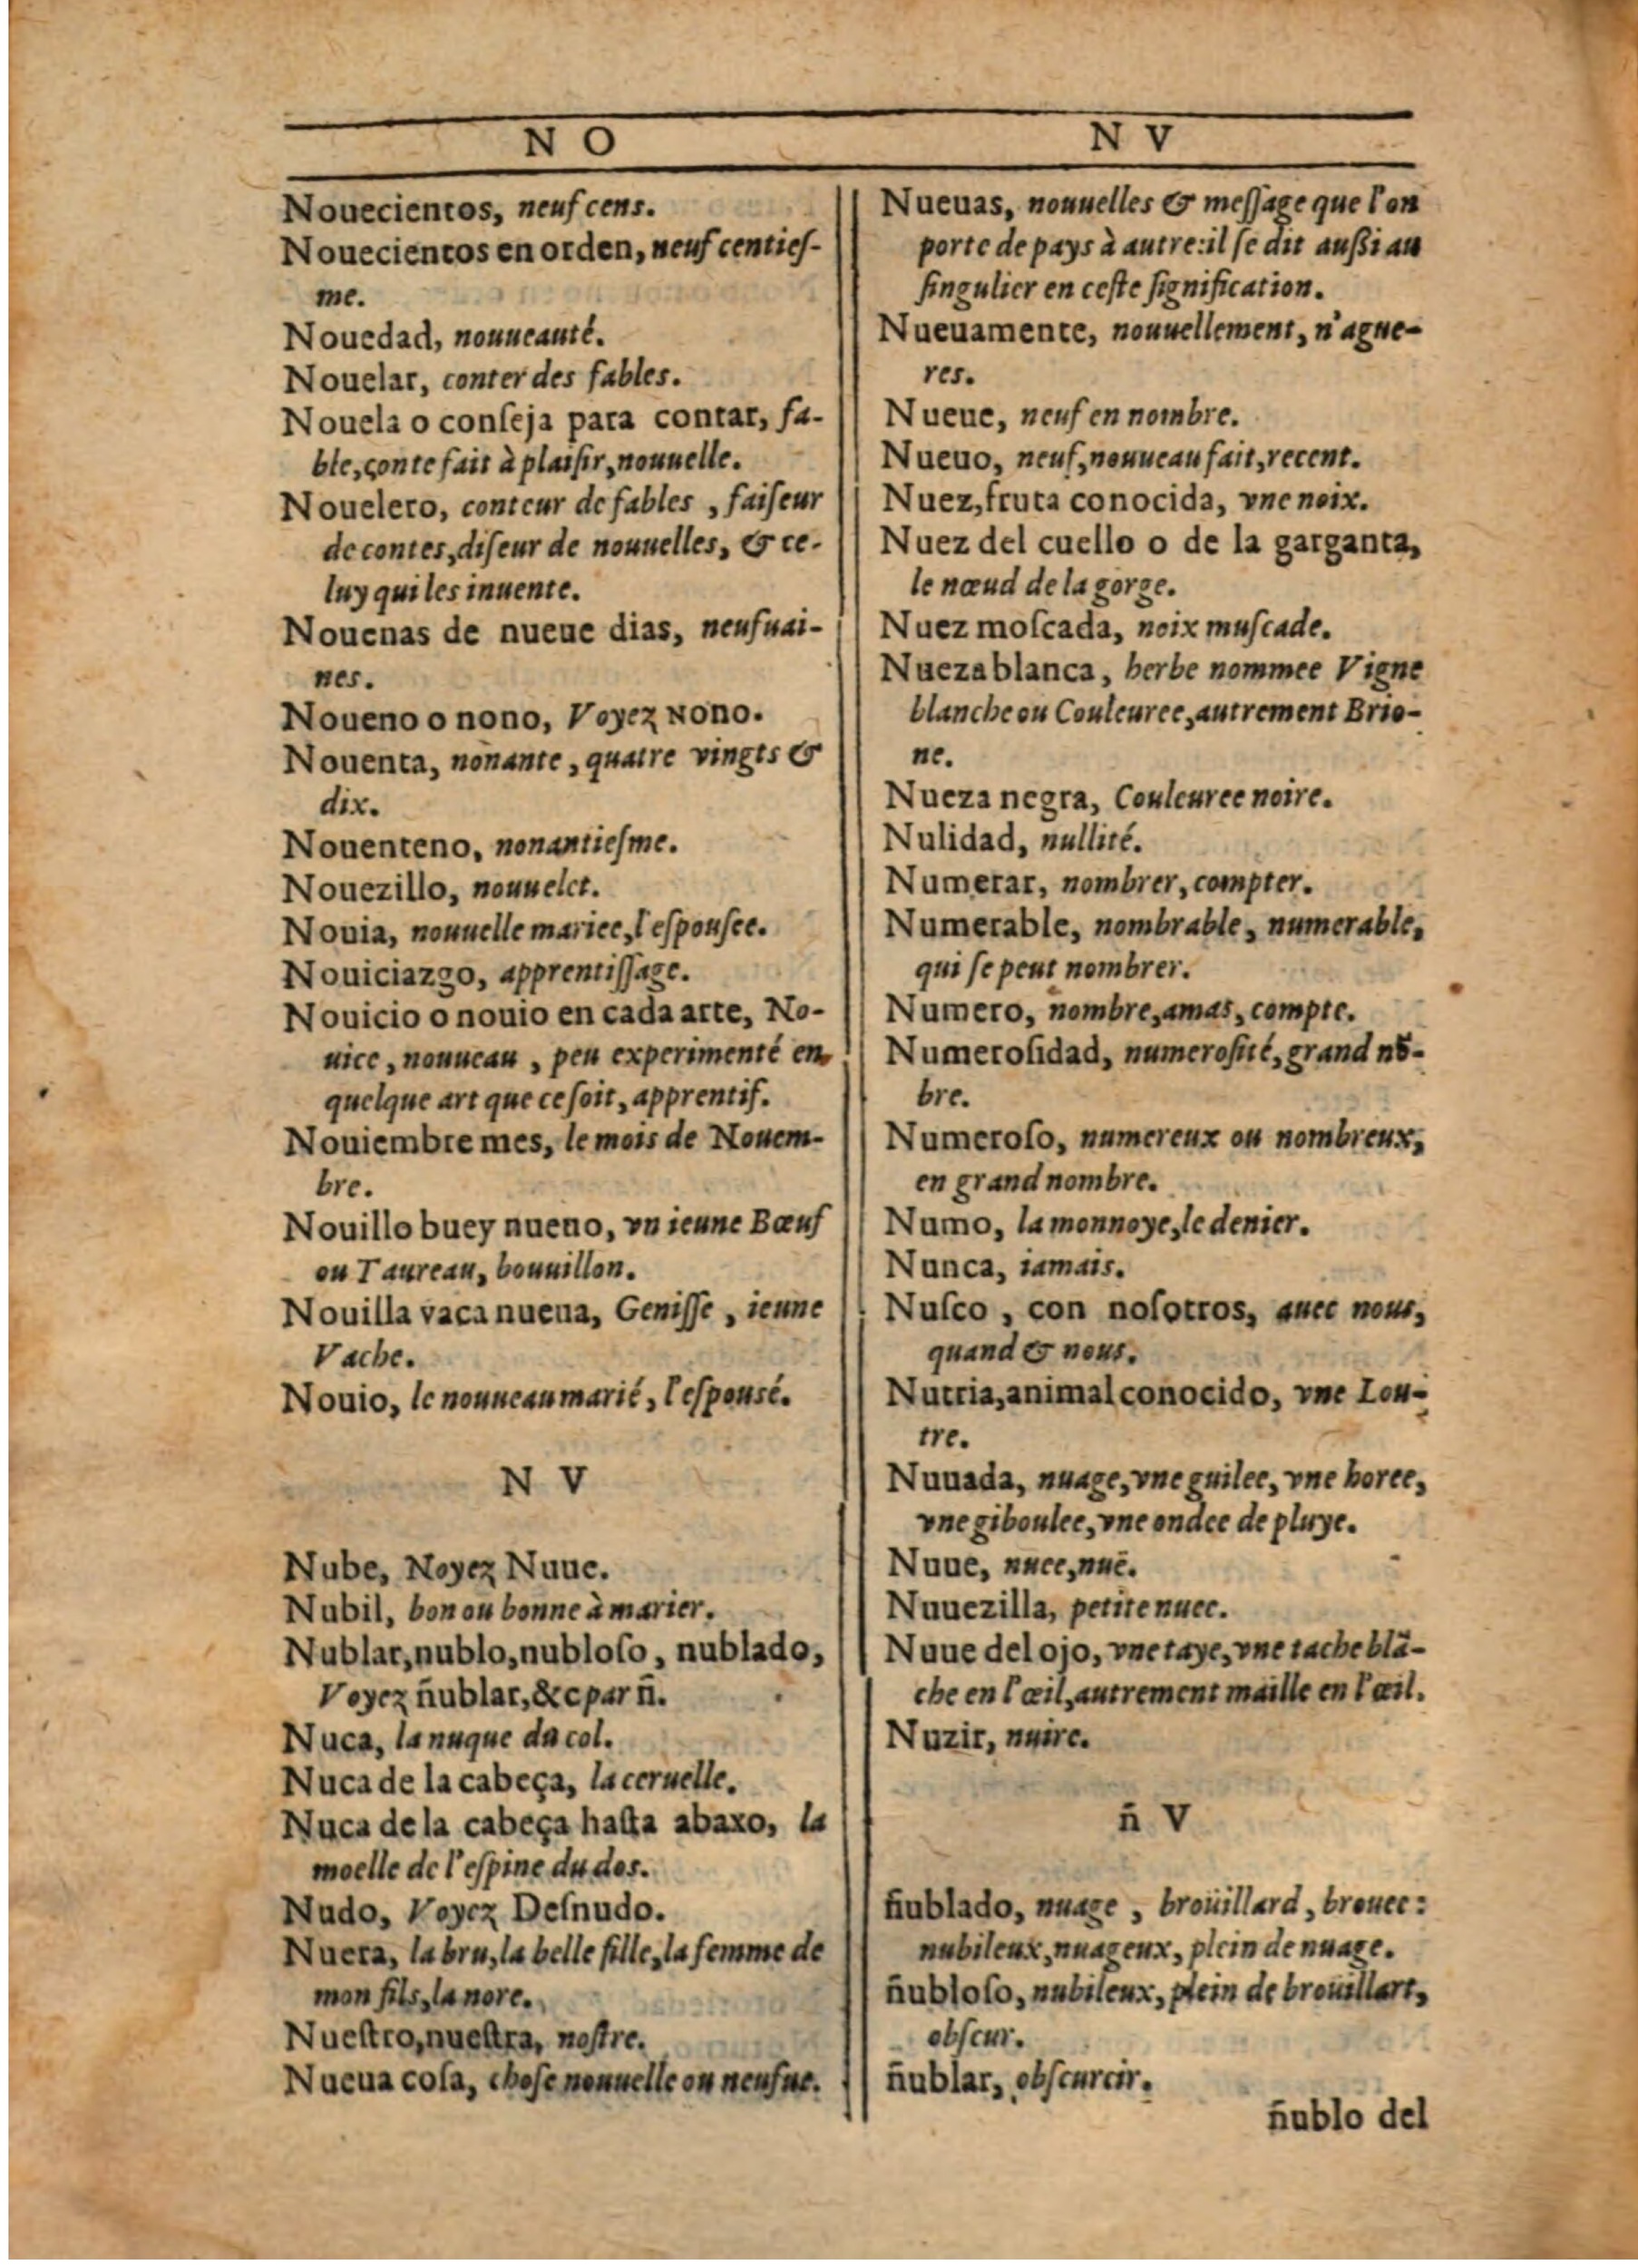 N O
Nouecientos, neuf cens.
Nouecientos en orden, neuf centieſ-
me.
Nouedad, nouueauté.
Nouelar, conter des fables.
Nouela o conſeja para contar, fa-
ble, conte fait à plaiſir, nouuelle.
Nouelero, conteur de fables, faiſeur
de contes, diſeur de nouuelles, & ce-
luy qui les inuente.
Nouenas de nueue dias, neufuai-
nes.
Noueno o nono, Voyez Nono.
Nouenta, nonante, quatre vingts &
dix.
Nouenteno, nonantieſme.
Nouezillo, nouuelet.
Nouia, nouuelle mariee, l'eſpouſee.
Nouiciazgo, apprentiſſage.
Nouicio o nouio en cada arte, No-
uice, nouueau, peu experimenté en
quelque art que ce ſoit, apprentif.
Nouiembre mes, le mois de Nouem-
bre.
Nouillo buey nueuo, vn ieune Bœuf
ou Taureau, bouuillon.
Nouilla vaca nueua, Geniſſe, ieune
Vache.
Nouio, le nouueau marié, l'eſpousé.
N V
Nube, Noyez Nuue.
Nubil, bon ou bonne à marier.
Nublar, nublo, nubloſo, nublado,
Voyez ñublar, &c par ñ.
Nuca, la nuque du col.
Nuca de la cabeça, la ceruelle.
Nuca de la cabeça haſta abaxo, la
moelle de l'eſpine du dos.
Nudo, Voyez Deſnudo.
Nuera, la bru, la belle fille, la femme de
mon fils, la nore.
Nueſtro, nueſtra, noſtre.
Nueua coſa, choſe nouuelle ou neufue.
N V
Nueuas, nouuelles & meſſage que l'on
porte de pays à autre: il ſe dit auſſi au
ſingulier en ceſte ſignification.
Nueuamente, nouuellement, n'ague-
res.
Nueue, neuf en nombre.
Nueuo, neuf, nouueau fait, recent.
Nuez, fruta conocida, vne noix.
Nuez del cuello o de la garganta,
le nœud de la gorge.
Nuez moſcada, noix muſcade.
Nueza blanca, herbe nommee Vigne
blanche ou Couleuree, autrement Brio-
ne.
Nueza negra, Couleuree noire.
Nulidad, nullité.
Numerar, nombrer, compter.
Numerable, nombrable, numerable,
qui ſe peut nombrer.
Numero, nombre, amas, compte.
Numeroſidad, numeroſité, grand nõ-
bre.
Numeroſo, numereux ou nombreux,
en grand nombre.
Numo, la monnoye, le denier.
Nunca, iamais.
Nuſco, con noſotros, auec nous,
quand & nous.
Nutria, animal conocido, vne Lou-
tre.
Nuuada, nuage, vne guilee, vne horee,
vne giboulee, vne ondee de pluye.
Nuue, nuee, nuë.
Nuuezilla, petite nuee.
Nuue del ojo, vne taye, vne tache blã-
che en l'œil, autrement maille en l'œil.
Nuzir, nuire.
ñ V
ñublado, nuage, broüillard, brouee:
nubileux, nuageux, plein de nuage.
ñubloſo, nubileux, plein de broüillart,
obſcur.
ñublar, obſcurcir.
ñublo del